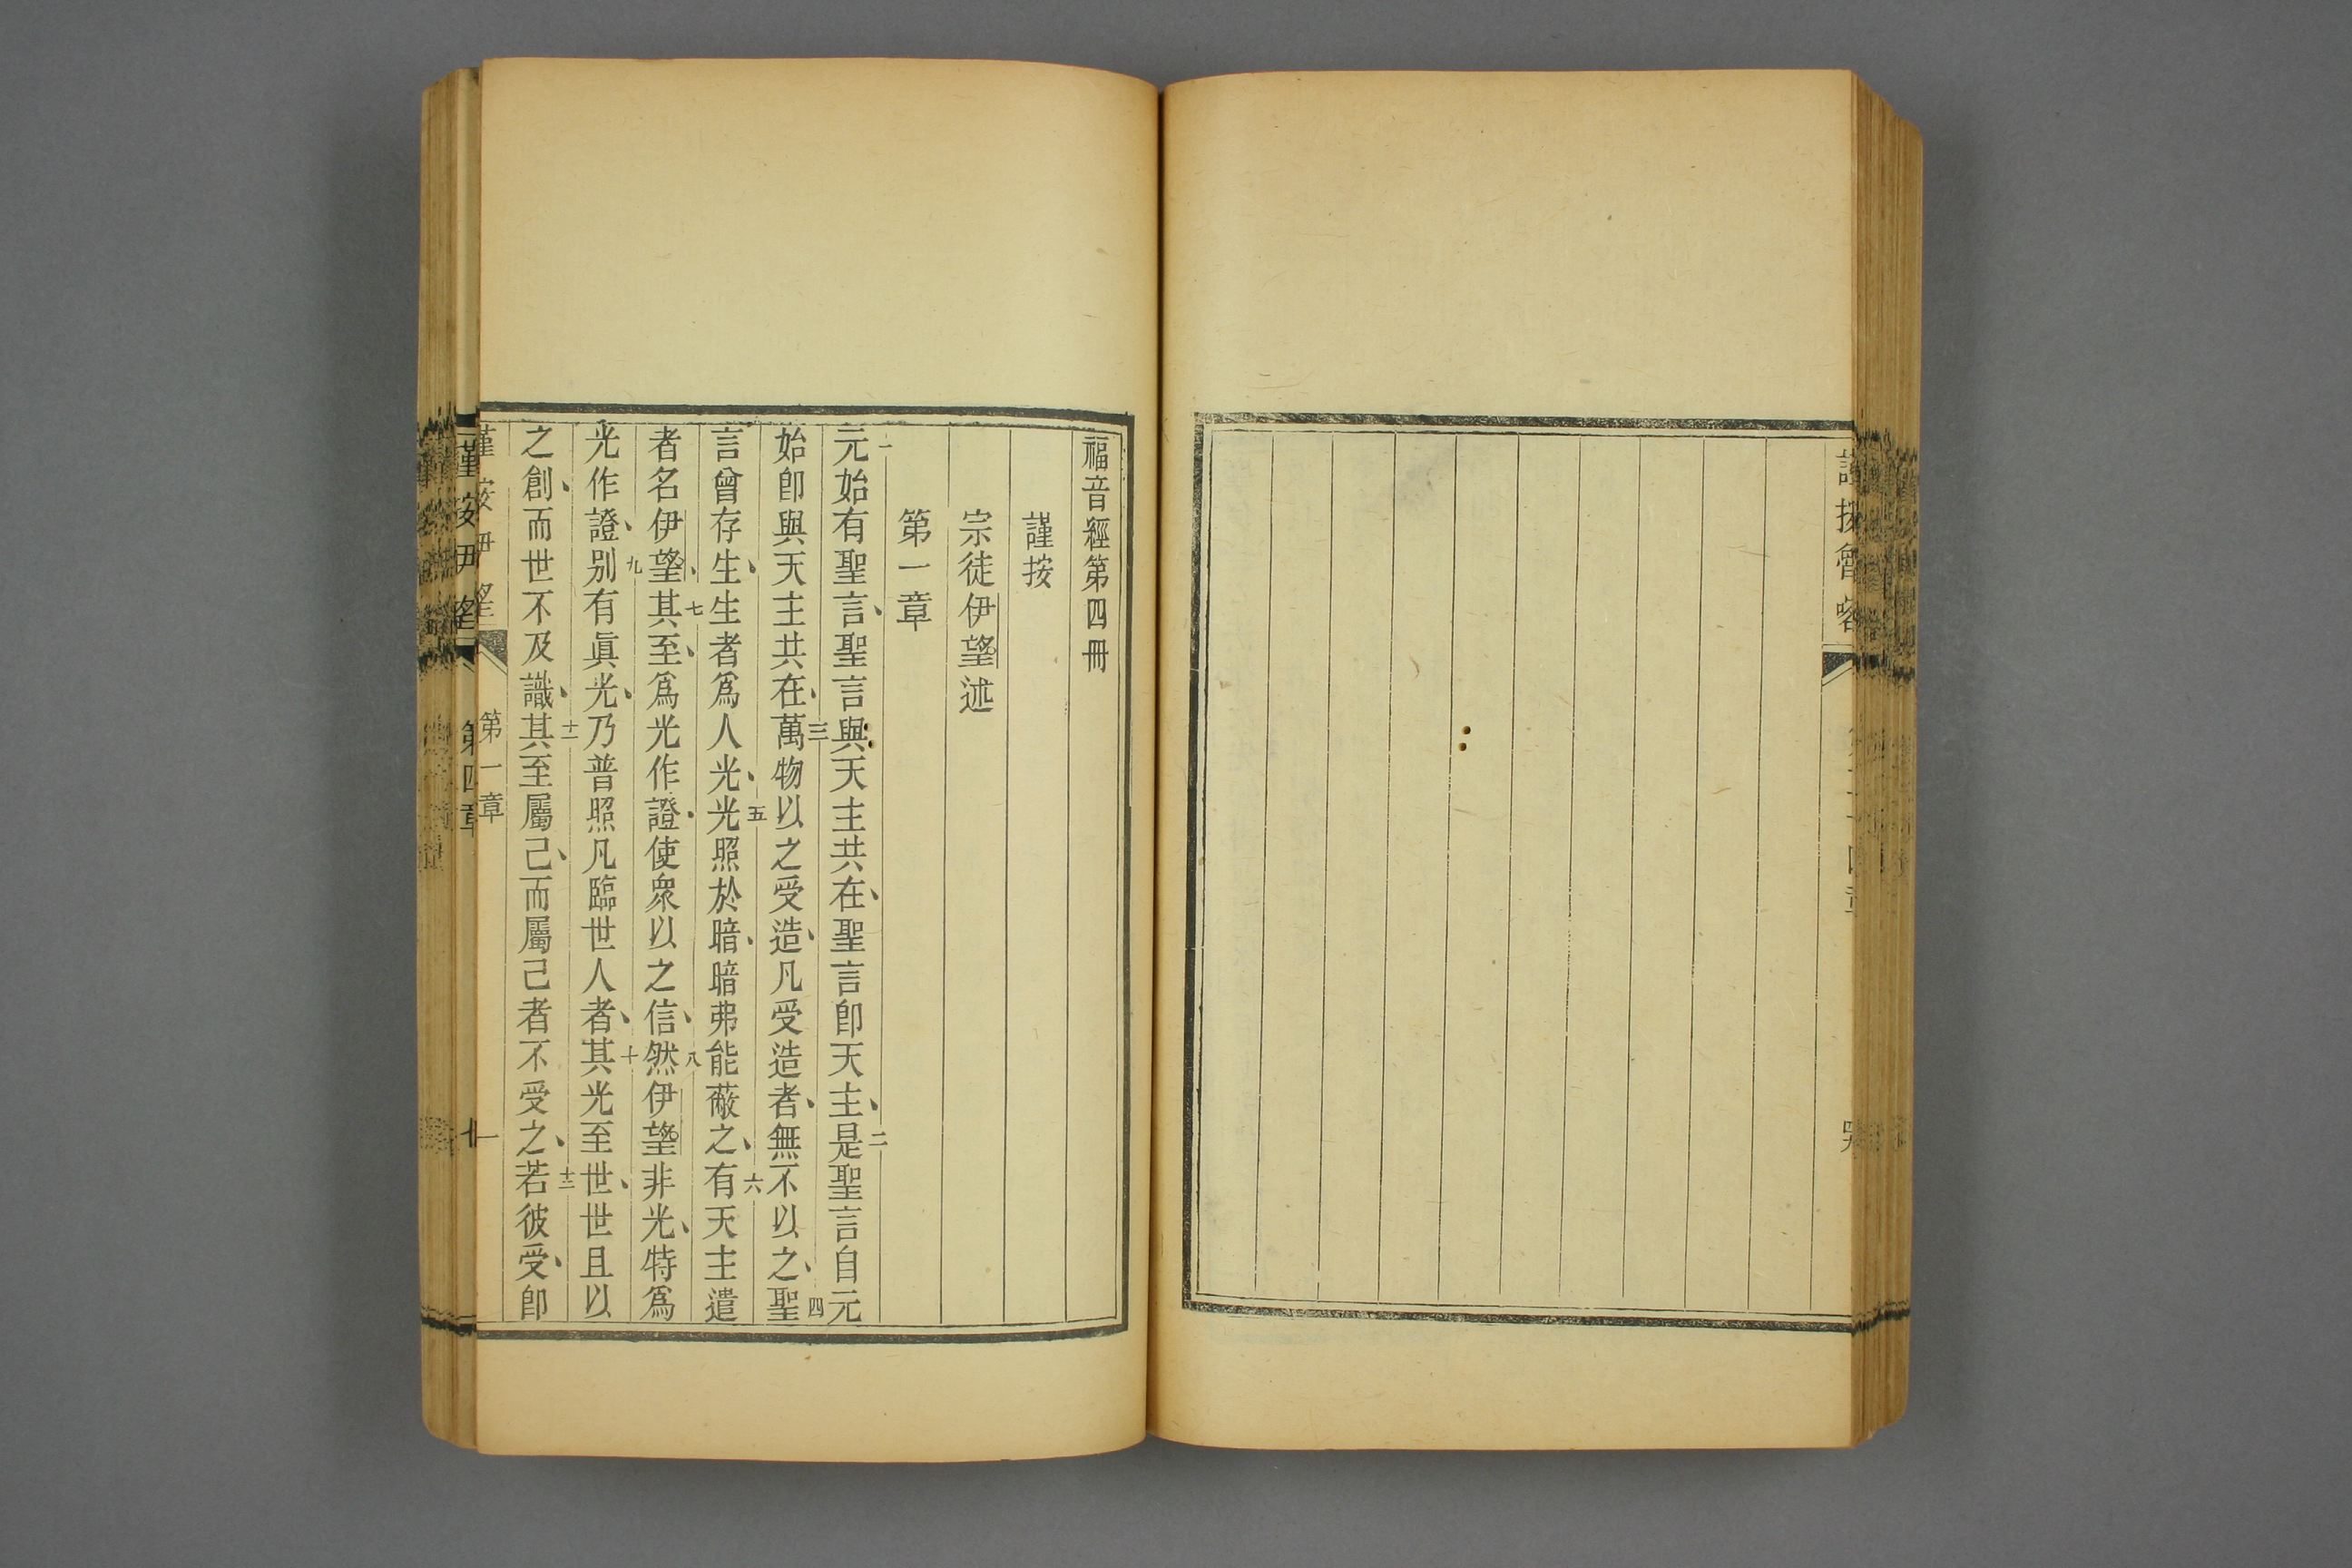 福音經第四冊
謹按
宗徒伊望述
第一章
一元始有聖言、聖言與天主共在、聖言卽天主、二是聖言自元
始卽與天主共在、三萬物以之受造、凡受造者、無不以之、四聖
言曾存生、生者爲人光、五光照於暗、暗弗能蔽之、六有天主遣
者名伊望、七其至、爲光作證、使衆以之信、八然伊望非光、特爲
光作證、九別有眞光、乃普照凡臨世人者、十其光至世、世且以
之創、而世不及識、十一其至屬己、而屬己者不受之、十二若彼受、卽
謹按伊望 第一章 一
謹按伊望 第四章